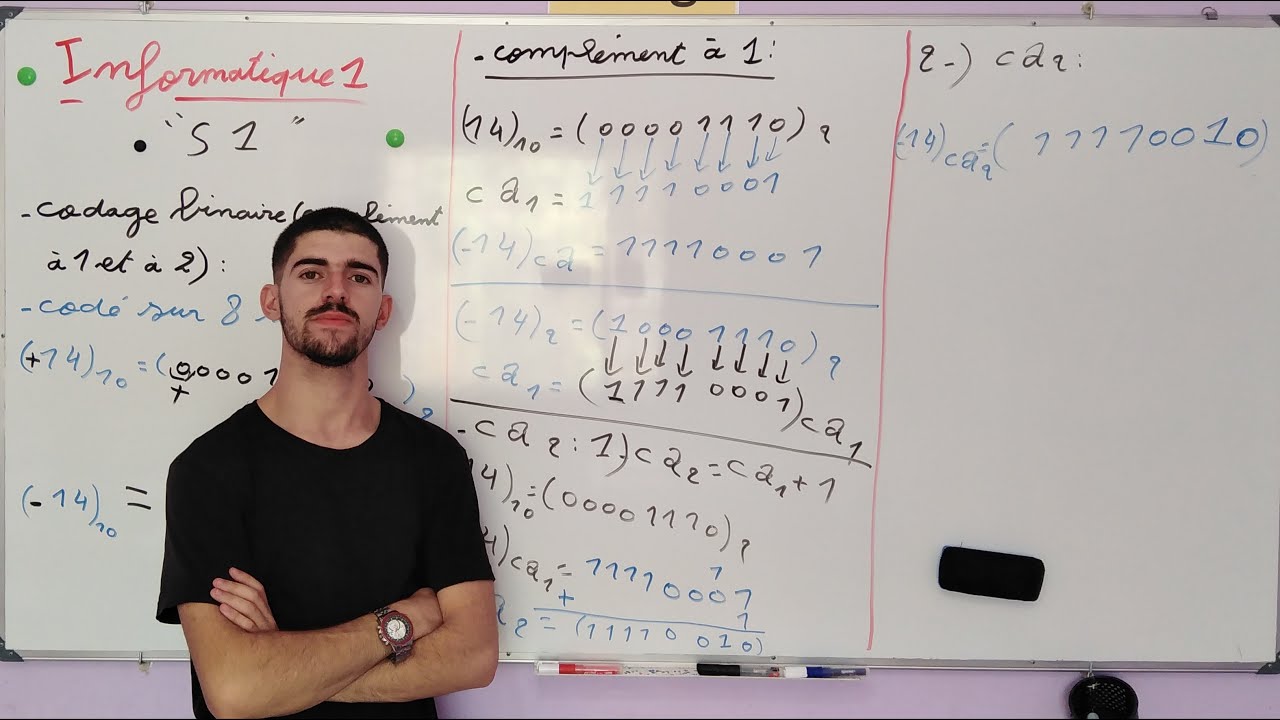 Informatique 1
"S1"
- codage binaire (
à 1 et à 2) :
- codé sur 8
(+14)₁₀ = (00001 )₂
+
(-14)₁₀ =
- complément à 1 :
(14)₁₀ = (00001110)₂
ca₁ = 11110001
(-14)ca = 11110001
(-14)₂ = (10001110)₂
ca₁ = (11110001)ca₁
- ca₂ : 1.) ca₂ = ca₁ + 1
14)₁₀ = (00001110)₂
)ca₁ = 11110001
1
+ 1
₂ = (11110010)
2-) ca₂ :
(-14)ca₂ = (11110010)